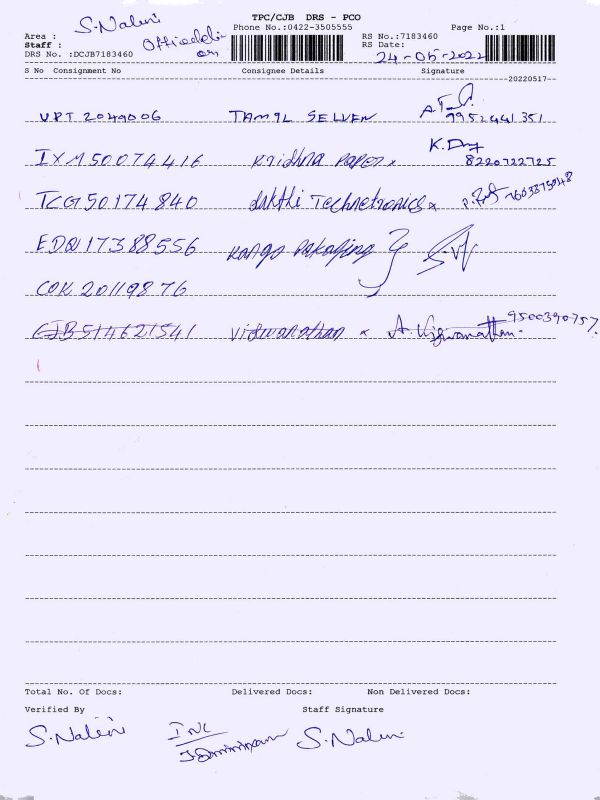 TPC/CJB DRS - PCO
S.Nalini
Phone No.:0422-3505555
Page No.:1
Area :
RS No.:7183460
Staff :
RS Date:
DRS No. :DCJB7183460
24-05-2022
S No Consignment No Consignee Details Signature
20220517
VPT 2049006 TAMIL SELVEN
9952441351
IXM50074416 Krishna Paper x K.
8220722725
TCG50174840 Sakthi Technetronics x
EDQ17388556 Kango Pakaging
COK20119876
CJB514621541 Viswanathan x A. Viswanathan.
9500390757.
Total No. Of Docs: Delivered Docs: Non Delivered Docs:
Verified By Staff Signature
S.Nalini INC S.Nalini